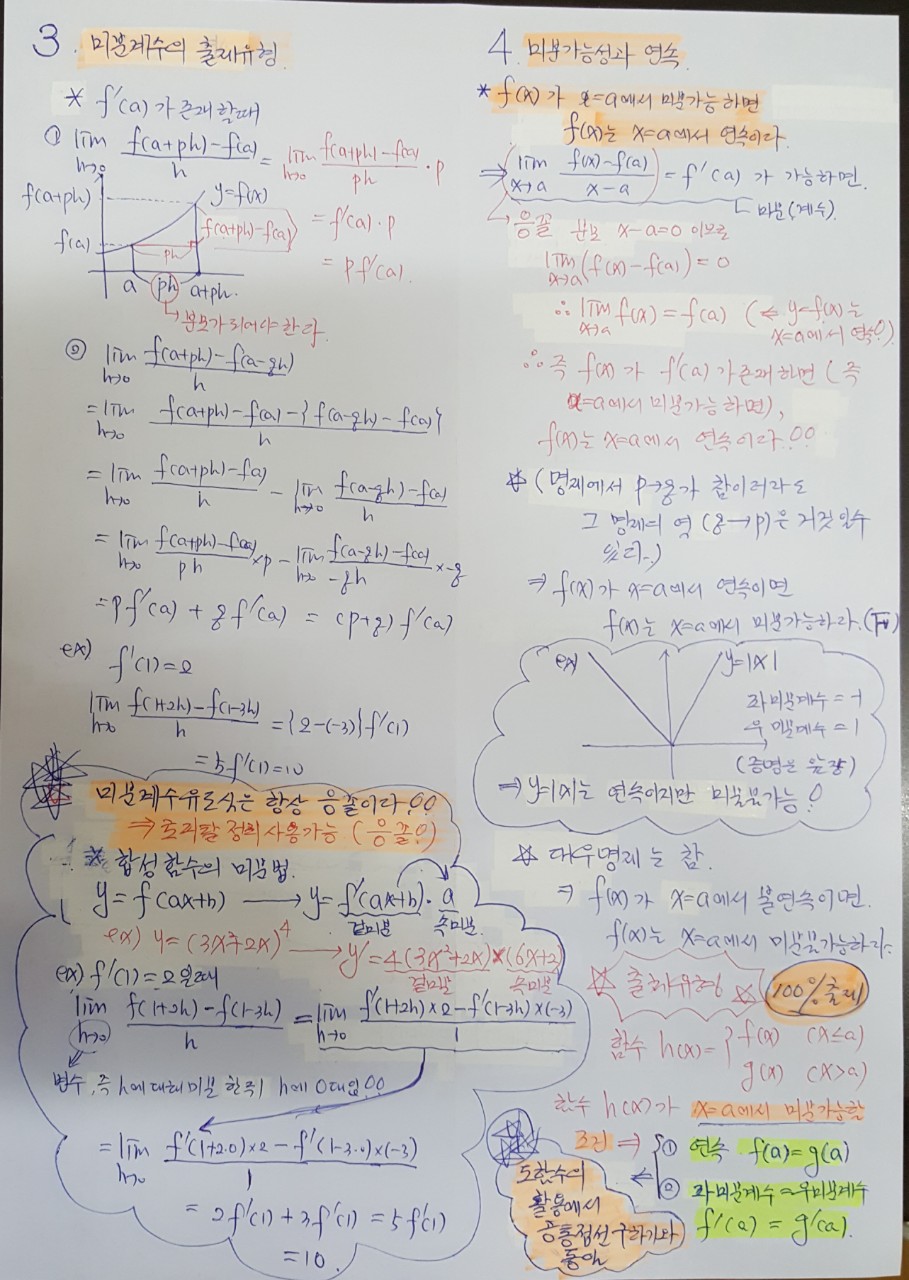 3. 미분계수의 출제유형
* f'(a)가 존재할때
① lim h→0 f(a+ph)-f(a) / h = lim h→0 f(a+ph)-f(a) / ph · p
= f'(a)·p
= pf'(a).
f(a+ph)
y=f(x)
f(a+ph)-f(a)
f(a)
ph
a ph a+ph.
분모가 되어야 한다.
② lim h→0 f(a+ph)-f(a-qh) / h
= lim h→0 f(a+ph)-f(a)-{f(a-qh)-f(a)} / h
= lim h→0 f(a+ph)-f(a) / h - lim h→0 f(a-qh)-f(a) / h
= lim h→0 f(a+ph)-f(a) / ph ×p - lim h→0 f(a-qh)-f(a) / -qh ×-q
= pf'(a) + qf'(a) = (p+q)f'(a)
ex) f'(1)=2
lim h→0 f(1+2h)-f(1-3h) / h = {2-(-3)}f'(1)
= 5f'(1)=10
미분계수유도식은 항상 응꼴이다!!
⇒ 로피탈 정리사용가능 (응꼴!)
* 합성함수의 미분법.
y=f(ax+b) → y=f'(ax+b)·a
겉미분 속미분.
ex) y=(3x²+2x)⁴ → y'=4(3x²+2x)×(6x+2)
겉미분 속미분
ex) f'(1)=2일때
lim h→0 f(1+2h)-f(1-3h) / h = lim h→0 f'(1+2h)×2-f'(1-3h)×(-3) / 1
변수, 즉 h에대해미분 한뒤 h에 0대입!!
= lim h→0 f'(1+2·0)×2-f'(1-3·0)×(-3) / 1
= 2f'(1)+3f'(1) = 5f'(1)
=10.
4. 미분가능성과 연속
* f(x)가 x=a에서 미분가능하면
f(x)는 x=a에서 연속이다.
⇒ lim x→a f(x)-f(a) / x-a = f'(a) 가 가능하면.
미분(계수).
응꼴 분모 x-a=0 이므로
lim x→a (f(x)-f(a))=0
∴ lim x→a f(x)=f(a) (⇐ y=f(x)는
x=a에서 연속!)
∴ 즉 f(x)가 f'(a)가 존재하면 (즉
x=a에서 미분가능하면),
f(x)는 x=a에서 연속이다!!
☆ (명제에서 p→q가 참이더라도
그 명제의 역 (q→p)은 거짓일수
있다.)
⇒ f(x)가 x=a에서 연속이면
f(x)는 x=a에서 미분가능하다. (F)
ex)
y=|x|
좌미분계수=-1
우미분계수=1
⇒ y=|x|는 연속이지만 미분불가능!
☆ 대우명제는 참.
⇒ f(x)가 x=a에서 불연속이면.
f(x)는 x=a에서 미분불가능하다.
☆ 출제유형 ☆
100% 출제
함수 h(x)={ f(x) (x≤a)
g(x) (x>a)
함수 h(x)가 x=a에서 미분가능할
조건 ⇒ { ① 연속 f(a)=g(a)
② 좌미분계수=우미분계수
f'(a)=g'(a).
도함수의
활용에서
공통접선구하기와
동일